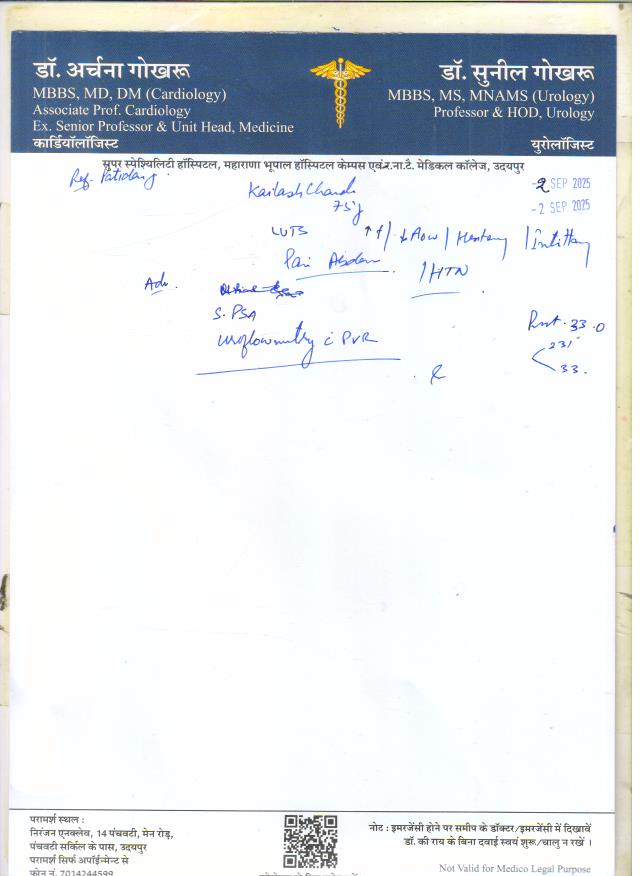 डॉ. अर्चना गोखरू
MBBS, MD, DM (Cardiology)
Associate Prof. Cardiology
Ex. Senior Professor & Unit Head, Medicine
कार्डियॉलॉजिस्ट
डॉ. सुनील गोखरू
MBBS, MS, MNAMS (Urology)
Professor & HOD, Urology
युरोलॉजिस्ट
सुपर स्पेश्यिलिटी हॉस्पिटल, महाराणा भूपाल हॉस्पिटल केम्पस एवं र.ना.टै. मेडिकल कॉलेज, उदयपुर
Ref.
Kailash Chand
75y
-2 SEP 2025
-2 SEP 2025
LUTS
/ HTN
Adv.
S. PSA
Uroflowmetry c PVR
33.0
231
33.
परामर्श स्थल :
निरंजन एनक्लेव, 14 पंचवटी, मेन रोड़,
पंचवटी सर्किल के पास, उदयपुर
परामर्श सिर्फ अपॉईन्मेन्ट से
फोन नं. 7014244599
नोट : इमरजेंसी होने पर समीप के डॉक्टर/इमरजेंसी में दिखावें
डॉ. की राय के बिना दवाई स्वयं शुरू/चालु न रखें ।
Not Valid for Medico Legal Purpose